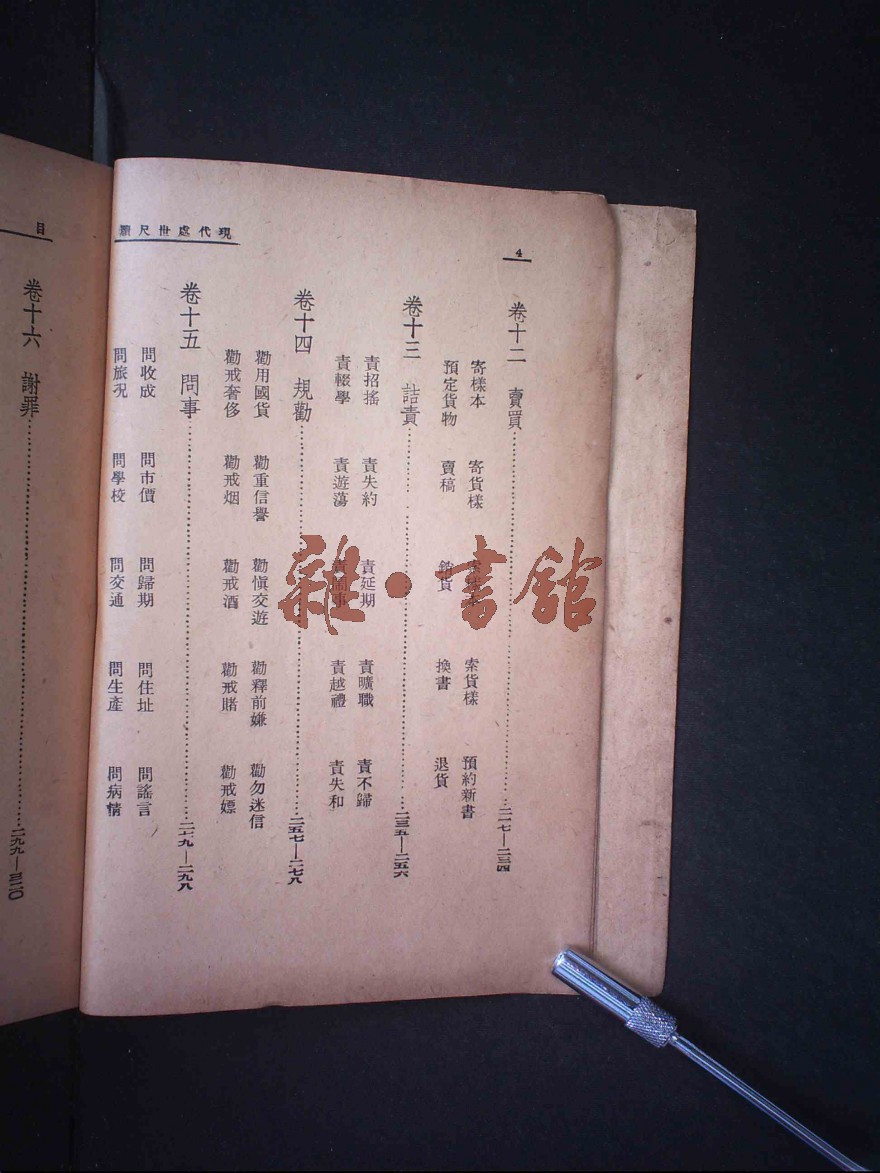 4
現代處世尺牘
卷十二 賣買…………二一七—二三四
寄樣本 寄貨樣 索樣本 索貨樣 預約新書
預定貨物 賣稿 銷貨 換書 退貨
卷十三 詰責…………二三五—二五六
責招搖 責失約 責延期 責曠職 責不歸
責輟學 責遊蕩 責鬧事 責越禮 責失和
卷十四 規勸…………二五七—二七八
勸用國貨 勸重信譽 勸慎交遊 勸釋前嫌 勸勿迷信
勸戒奢侈 勸戒烟 勸戒酒 勸戒賭 勸戒嫖
卷十五 問事…………二七九—二九八
問收成 問市價 問歸期 問住址 問謠言
問旅況 問學校 問交通 問生產 問病情
目
卷十六 謝罪…………二九九—三二〇
雜·書館